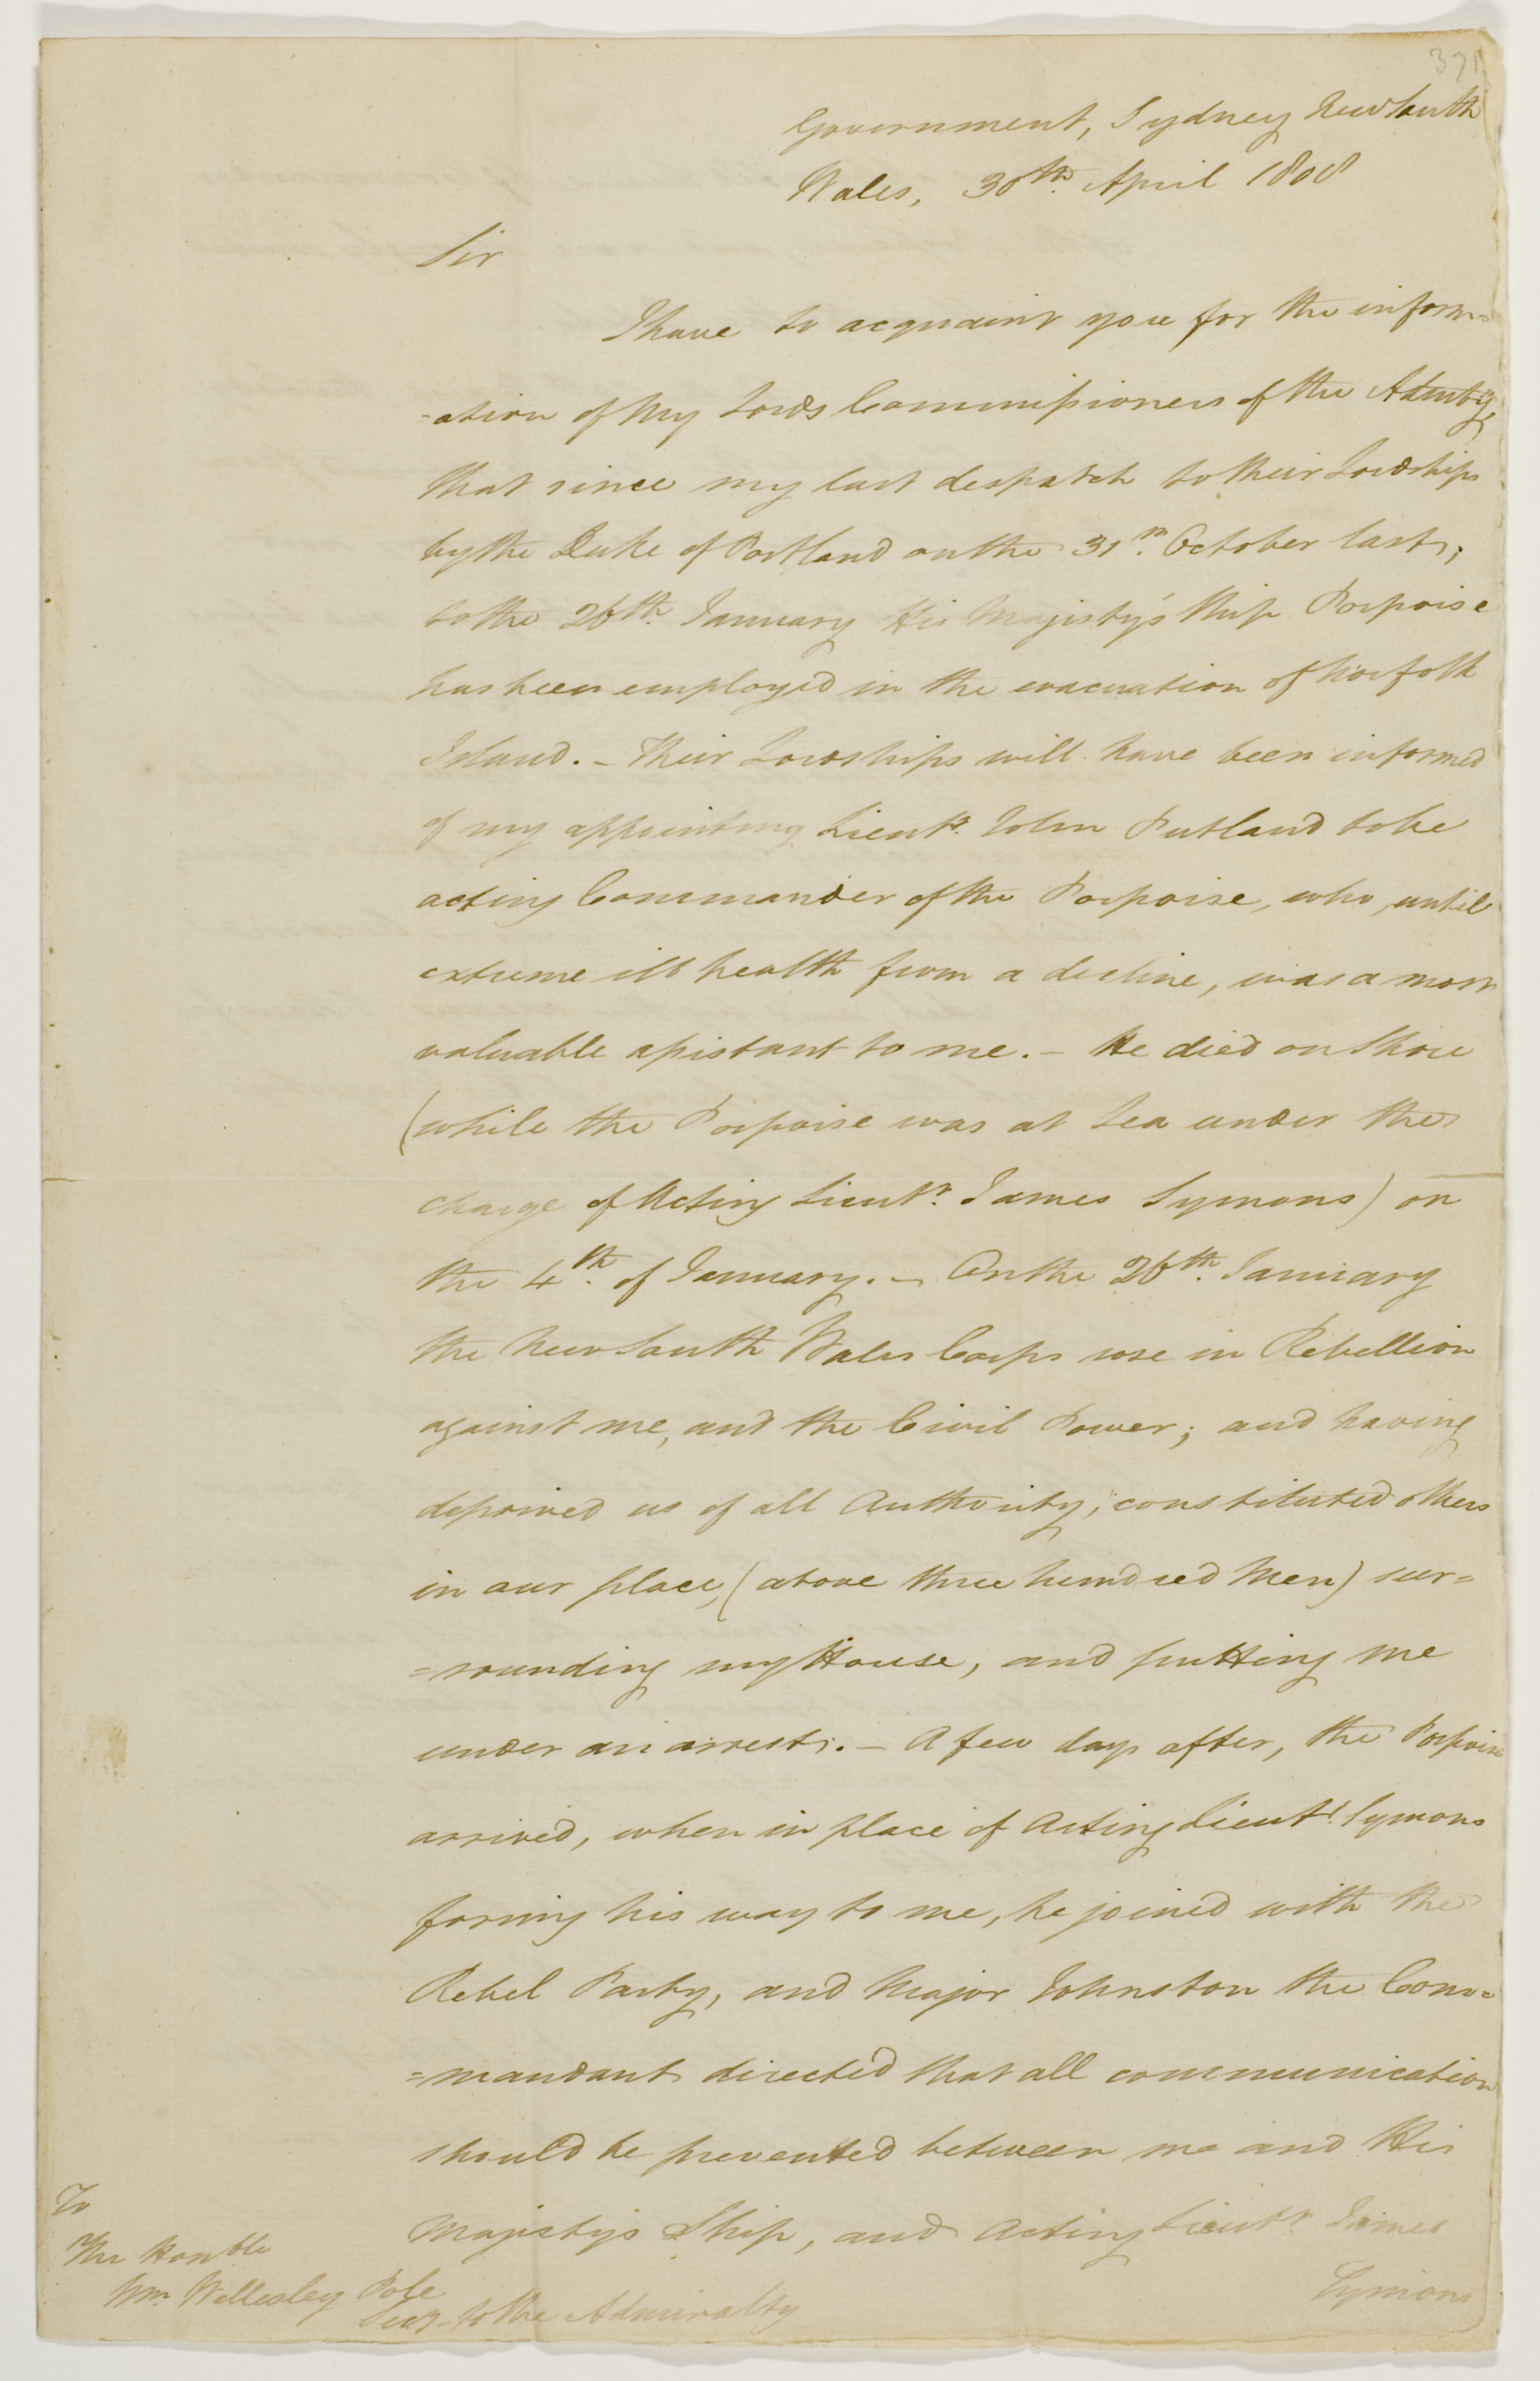 371
Government, Sydney New South
Wales, 30th. April 1808
Sir
I have to acquaint you for the inform=
=ation of My Lords Commissioners of the Admty.
that since my last despatch to their Lordships
by the Duke of Portland on the 31st. October last,
to the 26th. January His Majesty's Ship Porpoise
has been employed in the evacuation of Norfolk
Island. – Their Lordships will have been informed
of my appointing Lieutt. John Putland to be
acting Commander of the Porpoise, who, until
extreme ill health from a decline, was a most
valuable assistant to me. – He died on Shore
(while the Porpoise was at Sea under the
charge of Acting Lieutt. James Symons) on
the 4th. of January. – On the 26th. January
the New South Wales Corps rose in Rebellion
against me, and the Civil Power; and having
deprived us of all Authority, constituted others
in our place, (above three hundred Men) sur=
=rounding my House, and putting me
under an arrest. – A few days after, the Porpoise
arrived, when in place of Acting Lieutt. Symons
forcing his way to me, he joined with the
Rebel Party, and Major Johnston the Com=
=mandant directed that all communication
should be prevented between me and His
Majesty's Ship, and Acting Lieutt. James
Symons
To
The Honble
Wm. Wellesley Pole
Secy. to the Admiralty